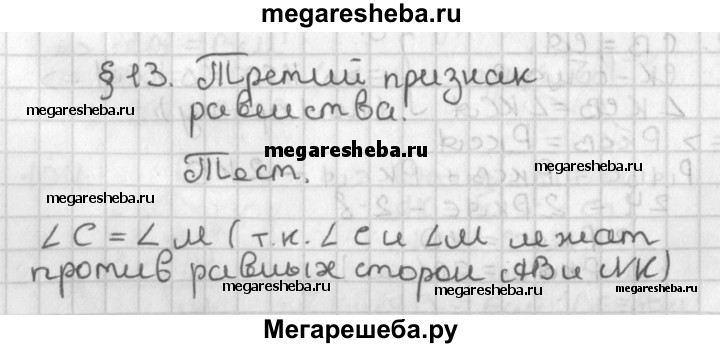 megaresheba.ru
§ 13. Третий признак
megaresheba.ru
равенства.
megaresheba.ru
megaresheba.ru
Тест.
megaresheba.ru
megaresheba.ru
∠C = ∠M (т.к. ∠C и ∠M лежат
против равных сторон (AB и NK)
megaresheba.ru
megaresheba.ru
megaresheba.ru
Мегарешеба.ру